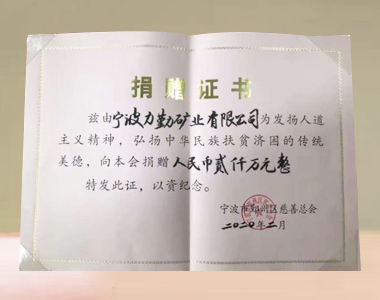 捐赠证书
兹由宁波力勤矿业有限公司为发扬人道
主义精神，弘扬中华民族扶贫济困的传统
美德，向本会捐赠人民币贰仟万元整
特发此证，以资纪念。
宁波市鄞州区慈善总会
2020年二月